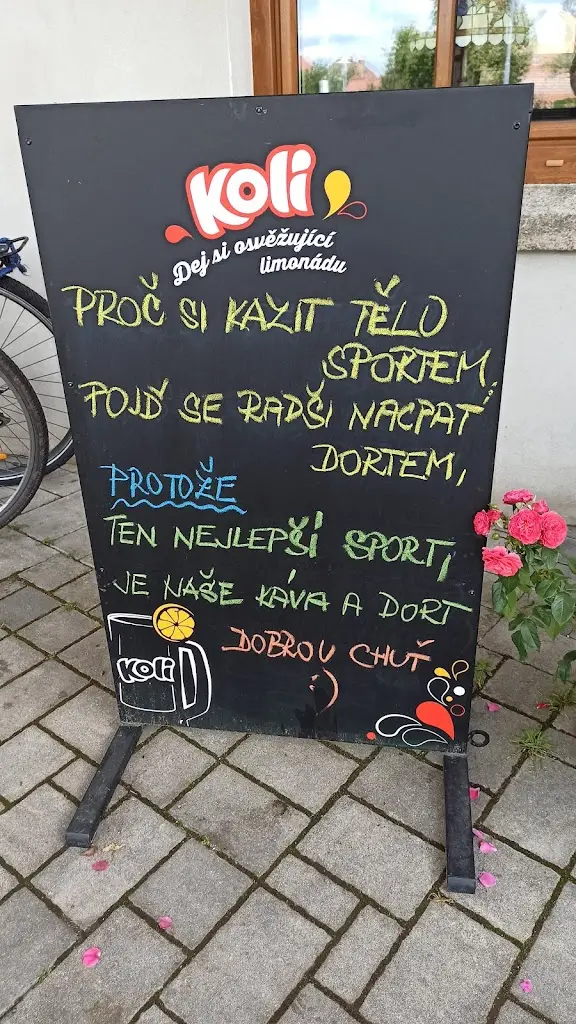 Koli
Dej si osvěžující
limonádu
PROČ SI KAZIT TĚLO
SPORTEM,
POJĎ SE RADŠI NACPAT
DORTEM,
PROTOŽE
TEN NEJLEPŠÍ SPORT,
JE NAŠE KÁVA A DORT
DOBROU CHUŤ
:)
Koli